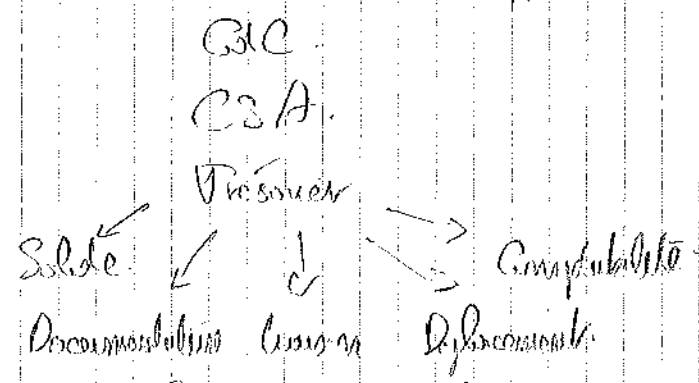 CdC.
C3A.
Trésorier
Solde. Comptabilité
Documentation Déplacement.